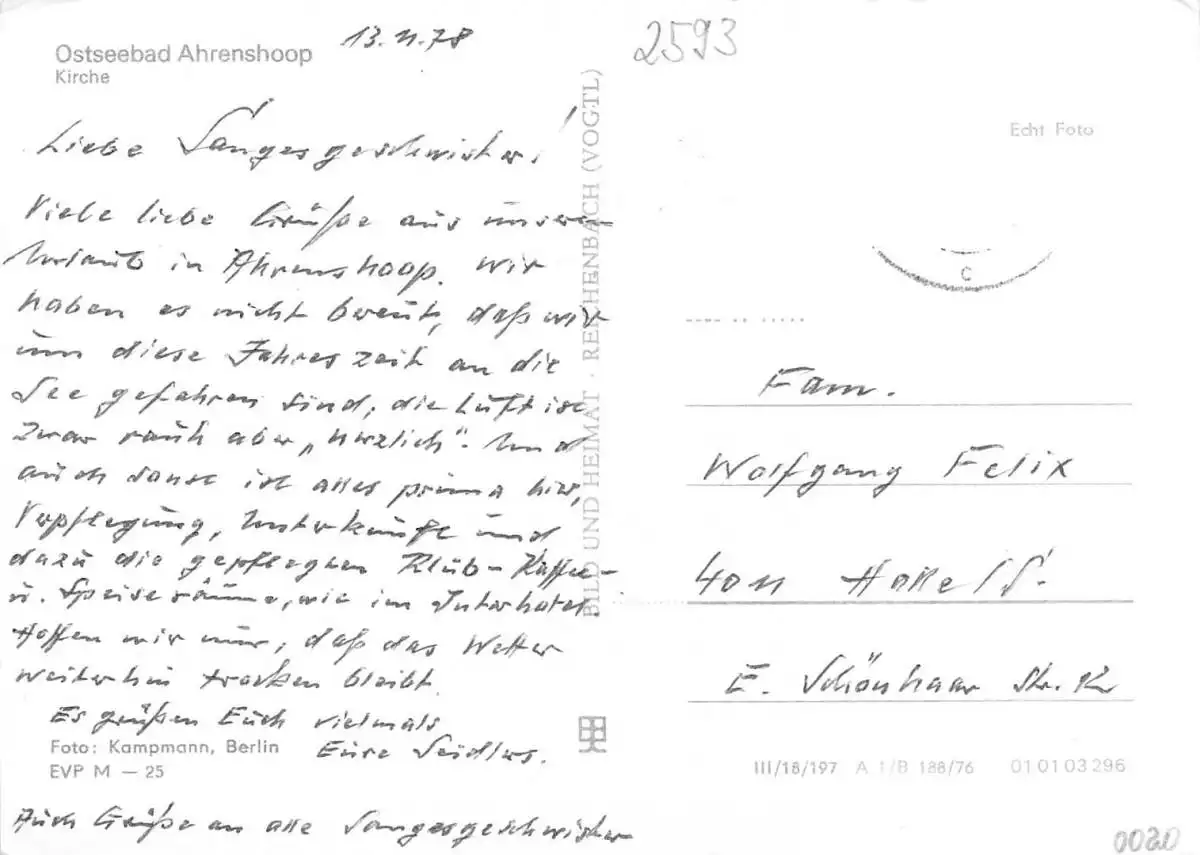 Ostseebad Ahrenshoop
Kirche
13.11.78
Liebe Sangesgeschwister!
Viele liebe Grüße aus unserem
Urlaub in Ahrenshoop. Wir
haben es nicht bereut, daß wir
um diese Jahreszeit an die
See gefahren sind, die Luft ist
zwar rauh aber „herzlich“. Und
auch sonst ist alles prima hier,
Verpflegung, Unterkunft und
dazu die gepflegten Klub-Kaffee-
u. Speiseräume, wie im Interhotel.
Hoffen wir nur, daß das Wetter
weiterhin trocken bleibt.
Es grüßen Euch vielmals
Eure
Foto: Kampmann, Berlin
EVP M — 25
Auch Grüße an alle Sangesgeschwister
BILD UND HEIMAT · REICHENBACH (VOGTL)
2593
Echt Foto
C
Fam.
Wolfgang Felix
4011 Halle/S.
E. Schönhaar Str.
III/18/197 A 1/B 188/76 01 01 03 296
0020